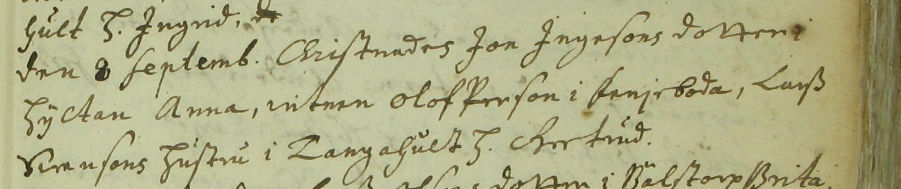 hult h. Ingrid.
den 8 Septemb. Christnades Jon Ingesons dotter i
Hyltan Anna, vitnen Olof Person i Senjeboda, Larß
Svensons hustru i Langahult h. Chertrud.
dotter i Bälstorp Brita.